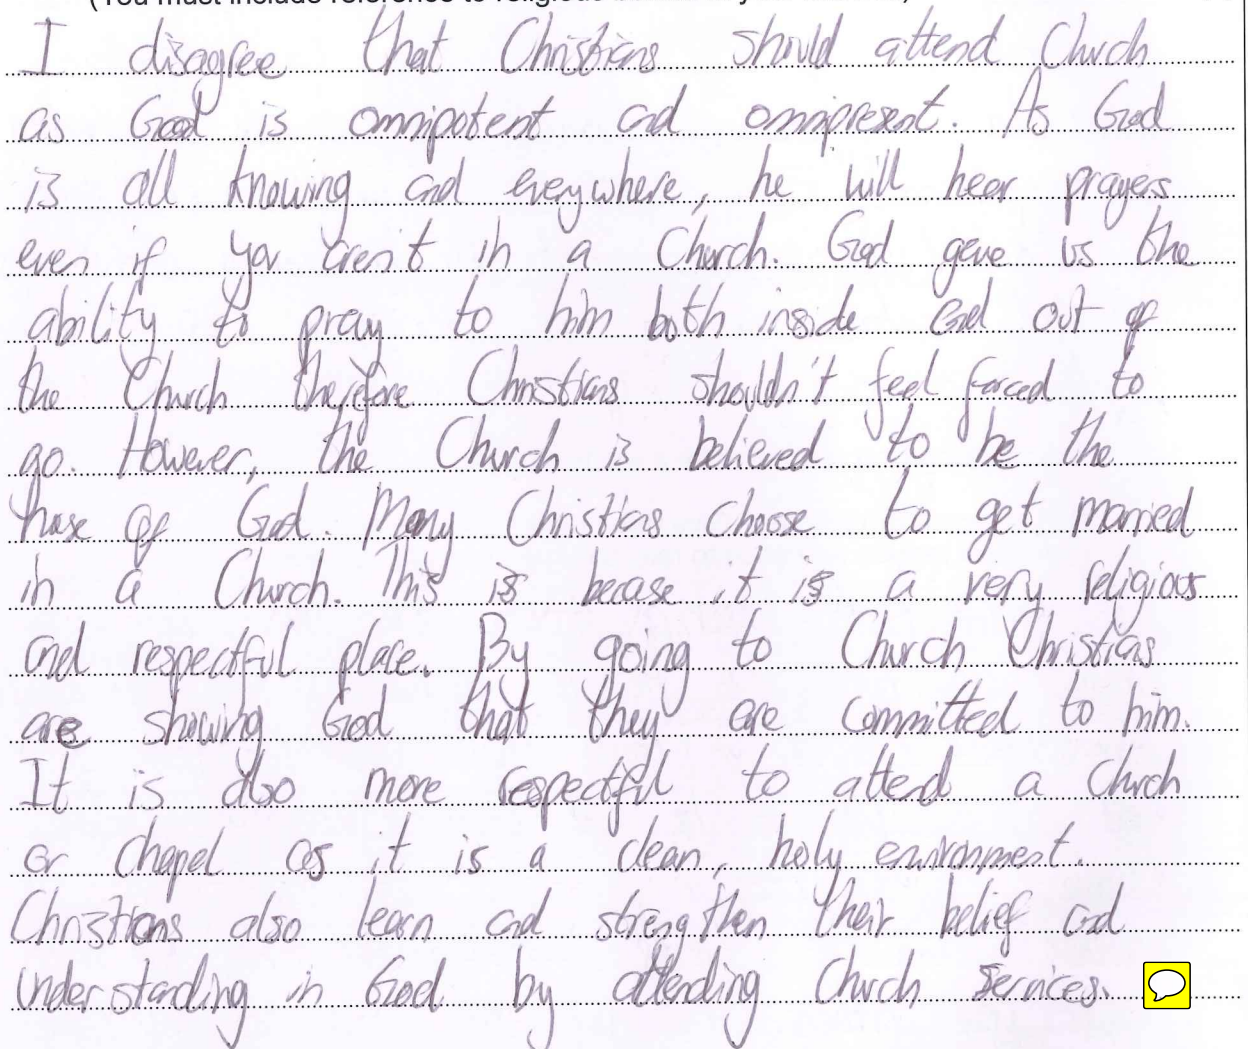 I disagree that Christians should attend Church
as God is omnipotent and omnipresent. As God
is all knowing and everywhere, he will hear prayers
even if you aren't in a Church. God gave us the
ability to pray to him both inside and out of
the Church therefore Christians shouldn't feel forced to
go. However, the Church is believed to be the
house of God. Many Christians choose to get married
in a Church. This is because it is a very religious
and respectful place. By going to Church Christians
are showing God that they are committed to him.
It is also more respectful to attend a church
or chapel as it is a clean, holy environment.
Christians also learn and strengthen their belief and
understanding in God by attending Church services.